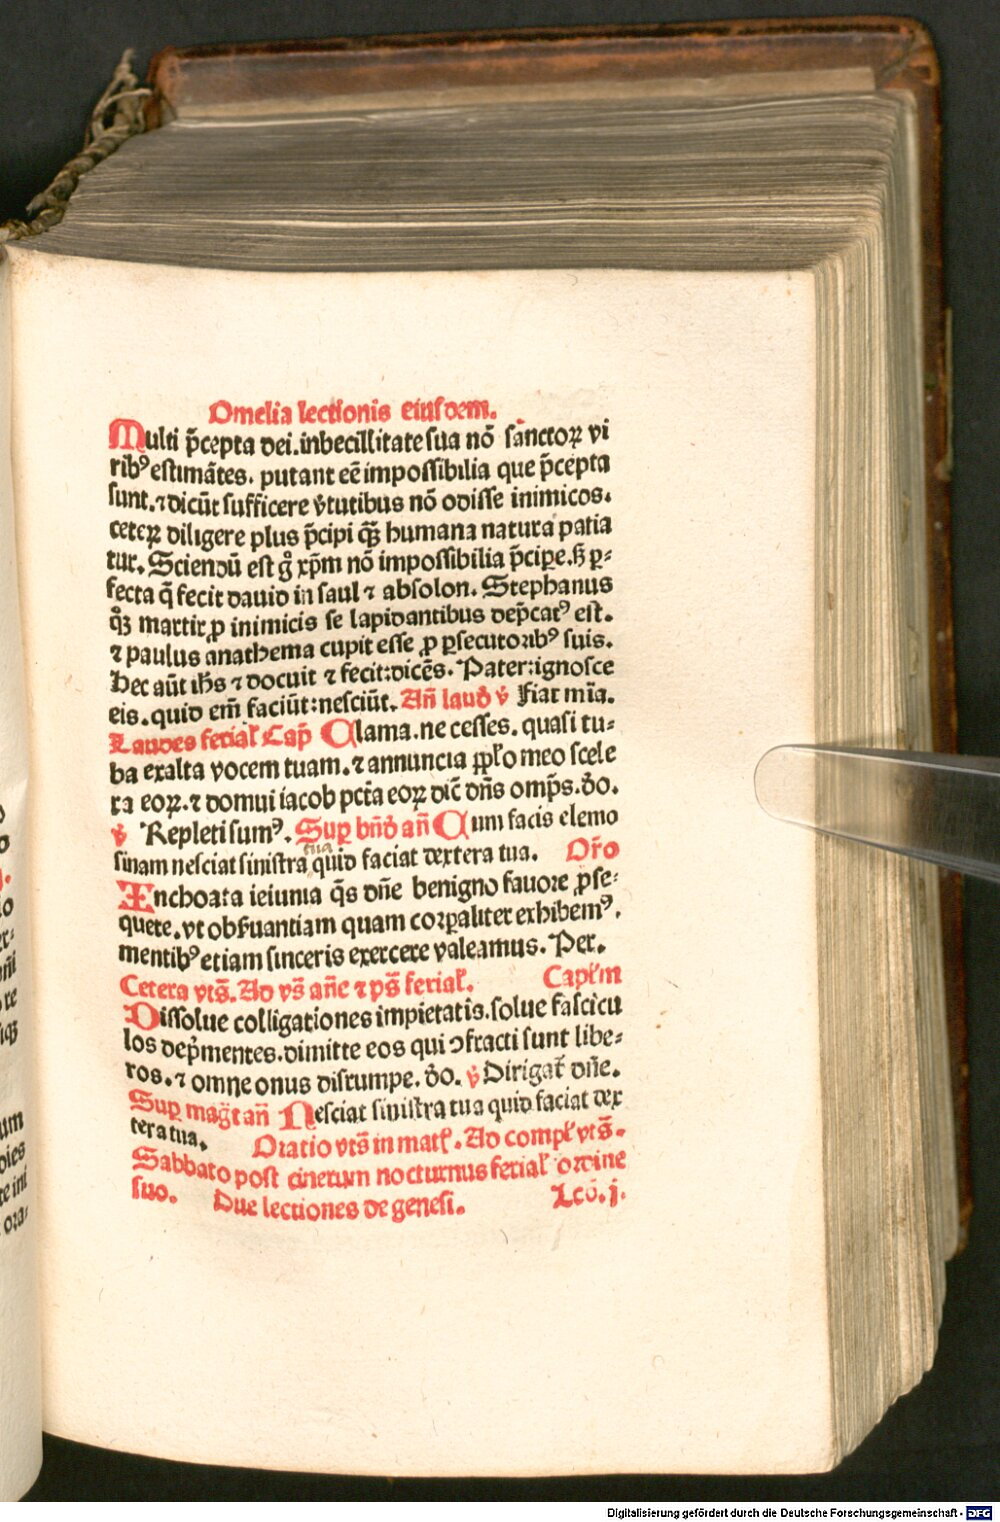 Omelia lectionis eiusdem.
Multi p̄cepta dei.inbecillitate sua nō sanctoꝝ vi
ribꝰ estimātes. putant eē impossibilia que p̄cepta
sunt.⁊ dicūt sufficere v̓tutibus nō odisse inimicos.
ceteꝝ diligere plus p̄cipi qꝫ̄ humana natura patia
tur. Sciendū est gͦ xp̄m nō impossibilia p̄cipe.ſꝫ ꝑ-
fecta q̄ fecit dauid in saul ⁊ absolon. Stephanus
qͦꝫ martir ꝓ inimicis se lapidantibus dep̄catꝰ est.
⁊ paulus anathema cupit esse ꝓ ꝑsecutoribꝰ suis.
Hec aūt ih̄s ⁊ docuit ⁊ fecit:dicēs. Pater:ignosce
eis.quid em̄ faciūt:nesciūt. An̄ laud̓ v̓ Fiat mīa.
Laudes ferial̓ Cap̄ Clama.ne cesses. quasi tu-
ba exalta vocem tuam.⁊ annuncia ppl̓o meo scele
ra eoꝝ.⁊ domui iacob pctā eoꝝ dic̄ dn̄s omp̄s.d̓o.
v̓ Repleti sumꝰ. Suꝑ bn̄d̓ an̄ Cum facis elemo
sinam nesciat sinistra tua quid faciat dextera tua. Or̓o
Inchoata ieiunia q̄s dn̄e benigno fauore ꝓse-
quere.vt obſ̓uantiam quam corꝑaliter exhibemꝰ.
mentibꝰ etiam sinceris exercere valeamus. Per.
Cetera vts̄. Ad vs̄ an̄e ⁊ ps̄ ferial̓. Capl̓m
Dissolue colligationes impietatis.solue fascicu
los dep̓mentes.dimitte eos qui ↄfracti sunt libe-
ros.⁊ omne onus disrumpe. d̓o. v̓ Dirigat̓ dn̄e.
Suꝑ mag̓t an̄ Nesciat sinistra tua quid faciat dex
tera tua. Oratio vts̄ in mat̓. Ad compl̓ vts̄.
Sabbato post cinerum nocturnus ferial̓ ordine
suo. Due lectiones de genesi. Lcō.j.
Digitalisierung gefördert durch die Deutsche Forschungsgemeinschaft - DFG